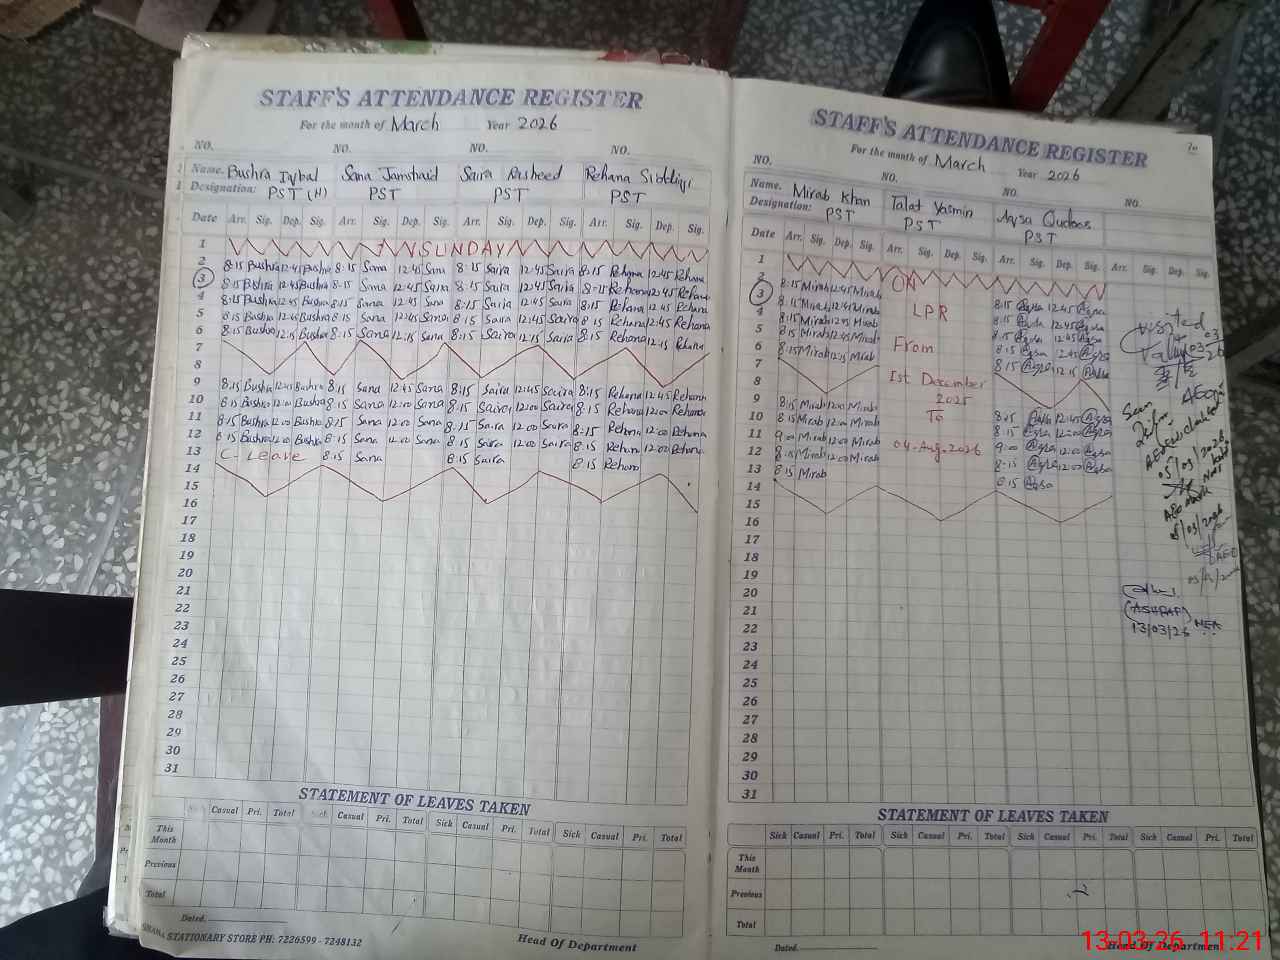 STAFF'S ATTENDANCE REGISTER
For the month of March Year 2026
NO. NO. NO. NO.
Name. Bushra Iqbal Sana Jamshaid Saira Rasheed Rehana Siddiqi
Designation: PST (H) PST PST PST
Date Arr. Sig. Dep. Sig. Arr. Sig. Dep. Sig. Arr. Sig. Dep. Sig. Arr. Sig. Dep. Sig.
1 SUNDAY
2 8:15 Bushra 12:45 Bushra 8:15 Sana 12:45 Sana 8:15 Saira 12:45 Saira 8:15 Rehana 12:45 Rehana
3 8:15 Bushra 12:45 Bushra 8:15 Sana 12:45 Sana 8:15 Saira 12:45 Saira 8:15 Rehana 12:45 Rehana
4 8:15 Bushra 12:45 Bushra 8:15 Sana 12:45 Sana 8:15 Saira 12:45 Saira 8:15 Rehana 12:45 Rehana
5 8:15 Bushra 12:45 Bushra 8:15 Sana 12:45 Sana 8:15 Saira 12:45 Saira 8:15 Rehana 12:45 Rehana
6 8:15 Bushra 12:15 Bushra 8:15 Sana 12:15 Sana 8:15 Saira 12:15 Saira 8:15 Rehana 12:15 Rehana
7
8
9 8:15 Bushra 12:45 Bushra 8:15 Sana 12:45 Sana 8:15 Saira 12:45 Saira 8:15 Rehana 12:45 Rehana
10 8:15 Bushra 12:00 Bushra 8:15 Sana 12:00 Sana 8:15 Saira 12:00 Saira 8:15 Rehana 12:00 Rehana
11 8:15 Bushra 12:00 Bushra 8:15 Sana 12:00 Sana 8:15 Saira 12:00 Saira 8:15 Rehana 12:00 Rehana
12 8:15 Bushra 12:00 Bushra 8:15 Sana 12:00 Sana 8:15 Saira 12:00 Saira 8:15 Rehana 12:00 Rehana
13 C- Leave 8:15 Sana 8:15 Saira 8:15 Rehana
14
15
16
17
18
19
20
21
22
23
24
25
26
27
28
29
30
31
STATEMENT OF LEAVES TAKEN
Sick Casual Pri. Total Sick Casual Pri. Total Sick Casual Pri. Total Sick Casual Pri. Total
This Month
Previous
Total
Dated.
STATIONARY STORE PH: 7226599 - 7248132 Head Of Department
STAFF'S ATTENDANCE REGISTER
For the month of March Year 2026
NO. NO. NO. NO.
Name. Mirab Khan Talat Yasmin Aqsa Qudoos
Designation: PST PST PST
Date Arr. Sig. Dep. Sig. Arr. Sig. Dep. Sig. Arr. Sig. Dep. Sig. Arr. Sig. Dep. Sig.
1
2 8:15 Mirab 12:45 Mirab ON 8:15 Aqsa 12:45 Aqsa
3 8:15 Mirab 12:45 Mirab LPR 8:15 Aqsa 12:45 Aqsa
4 8:15 Mirab 12:45 Mirab 8:15 Aqsa 12:45 Aqsa
5 8:15 Mirab 12:45 Mirab From 8:15 Aqsa 12:45 Aqsa
6 8:15 Mirab 12:15 Mirab 8:15 Aqsa 12:15 Aqsa
7 Ist December
8 2025
9 8:15 Mirab 12:00 Mirab To 8:15 Aqsa 12:45 Aqsa
10 8:15 Mirab 12:00 Mirab 8:15 Aqsa 12:00 Aqsa
11 9:00 Mirab 12:00 Mirab 04-Aug-2026 9:00 Aqsa 12:00 Aqsa
12 8:15 Mirab 12:00 Mirab 8:15 Aqsa 12:00 Aqsa
13 8:15 Mirab 8:15 Aqsa
14
15
16
17
18
19
20
21
22
23
24
25
26
27
28
29
30
31
visited
Seen
05/03/2026
(ASHRAF) MEA
13/03/26
STATEMENT OF LEAVES TAKEN
Sick Casual Pri. Total Sick Casual Pri. Total Sick Casual Pri. Total Sick Casual Pri. Total
This Month
Previous
Total
Dated. Head Of Department
13.03.26 11:21